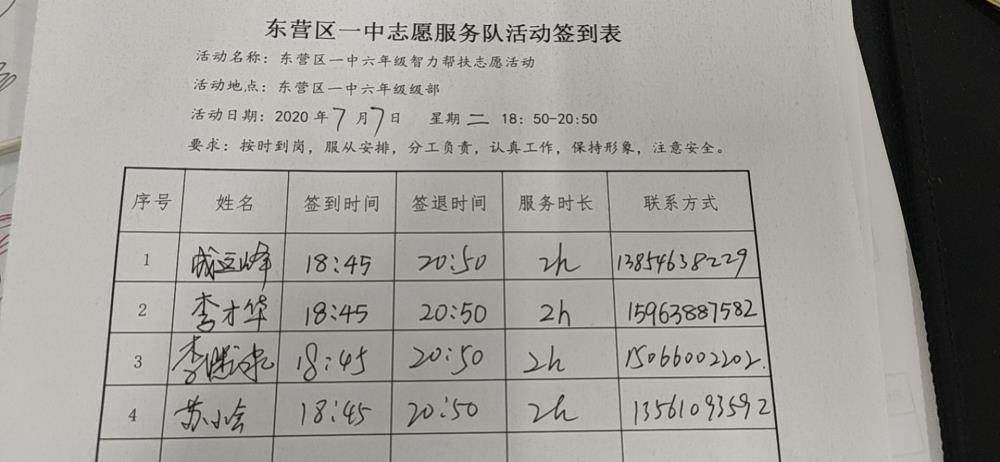 东营区一中志愿服务队活动签到表
活动名称：东营区一中六年级智力帮扶志愿活动
活动地点：东营区一中六年级级部
活动日期：2020 年 7 月 7 日 星期 二 18：50-20:50
要求：按时到岗，服从安排，分工负责，认真工作，保持形象，注意安全。
序号 姓名 签到时间 签退时间 服务时长 联系方式
1 成立峰 18:45 20:50 2h 13854638229
2 李才华 18:45 20:50 2h 15963887582
3 李 18:45 20:50 2h 15066002202.
4 苏小会 18:45 20:50 2h 13561093592